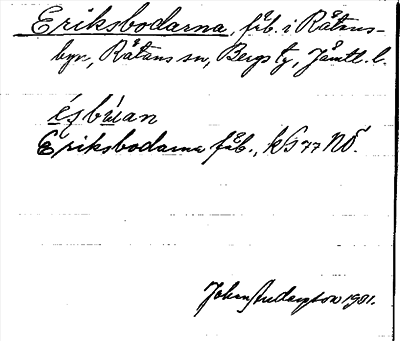 Eriksbodarna, fäb. i Råtans-
byn, Råtans sn, Bergs tg, Jämtl. l.
ésbúan
Eriksbodarna fäb., kG 77 NÖ.
Johan Anderzson 1901.